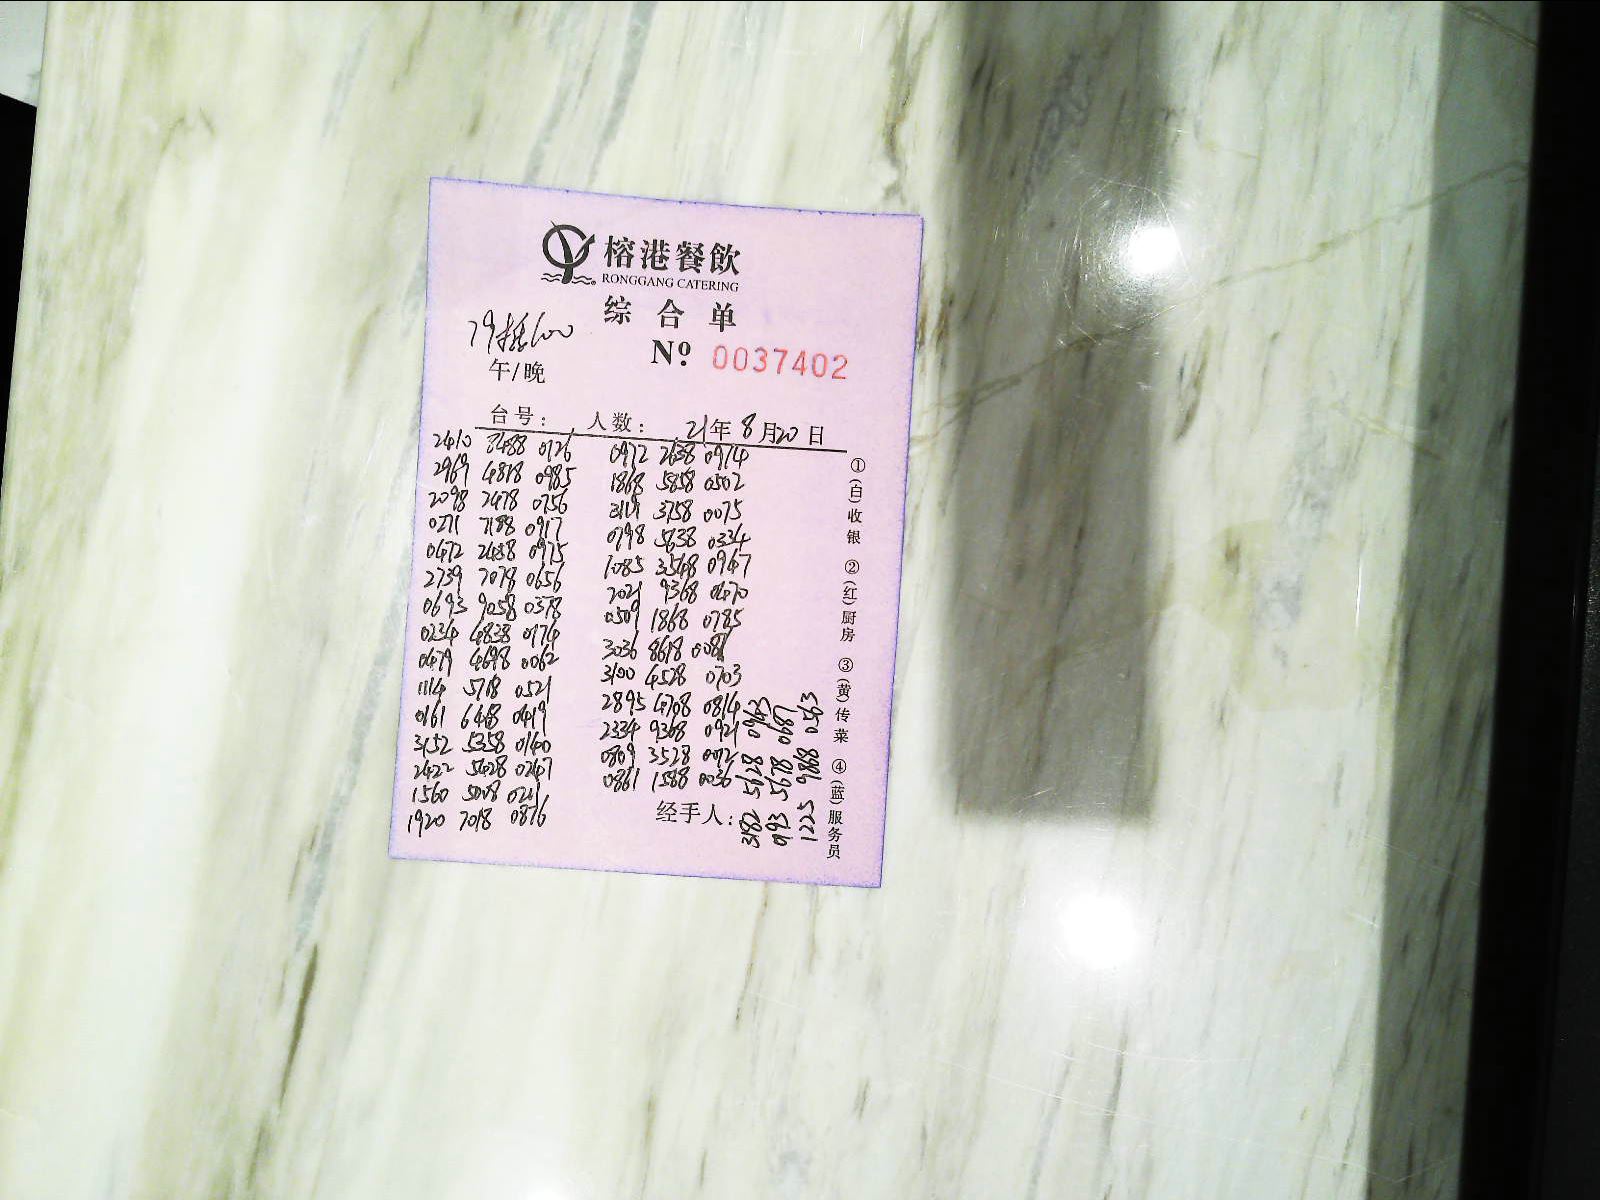 榕港餐飲
RONGGANG CATERING
综合单
79楼600
№ 0037402
午/晚
台号: 人数: 21年8月20日
2410 8488 0726
2969 4818 0985
2098 2478 0756
0271 7188 0917
0472 2438 0975
2739 7078 0656
0693 9058 0378
0234 4838 0174
0479 4698 0062
1114 5718 0521
0161 6468 0419
3152 5358 0140
2422 5428 0247
1560 5008 0211
1920 7018 0876
0972 2638 0974
1868 5858 0502
3119 3758 0075
0798 5638 0334
1085 3548 0947
2021 9368 0470
0509 1868 0785
3036 8618 0081
3100 4528 0703
2895 4708 0814
2334 9368 0921
0809 3528 0072
0861 1588 0036
3182 5628 0943
0993 5678 0687
1225 9868 0563
经手人:
①(白)收银 ②(红)厨房 ③(黄)传菜 ④(蓝)服务员